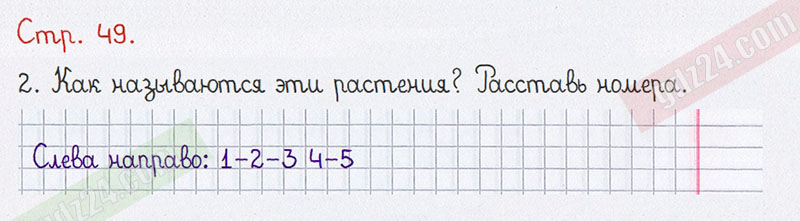 Стр. 49.
2. Как называются эти растения? Расставь номера.
Слева направо: 1-2-3 4-5
gdz24.com